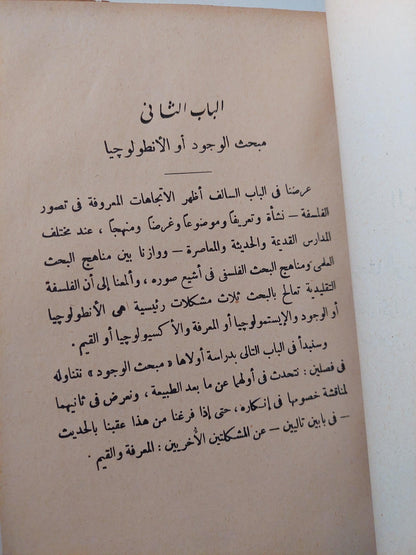 الباب الثانى
مبحث الوجود أو الأنطولوچيا
عرضنا فى الباب السالف أظهر الاتجاهات المعروفة فى تصور
الفلسفة — نشأة وتعريفاً وموضوعاً وغرضاً ومنهجاً ، عند مختلف
المدارس القديمة والحديثة والمعاصرة — ووازنا بين مناهج البحث
العلمى ومناهج البحث الفلسفى فى أشيع صوره ، وألمعنا إلى أن الفلسفة
التقليدية تعالج بالبحث ثلاث مشكلات رئيسية هى الأنطولوچيا
أو الوجود والإبستمولوچيا أو المعرفة والأكسيولوچيا أو القيم .
وسنبدأ فى الباب التالى بدراسة أولاها « مبحث الوجود » نتناوله
فى فصلين : نتحدث فى أولهما عن ما بعد الطبيعة ، ونعرض فى ثانيهما
لمناقشة خصومها فى إنكاره ، حتى إذا فرغنا من هذا عقبنا بالحديث
— فى بابين تاليين — عن المشكلتين الأخريين : المعرفة والقيم .